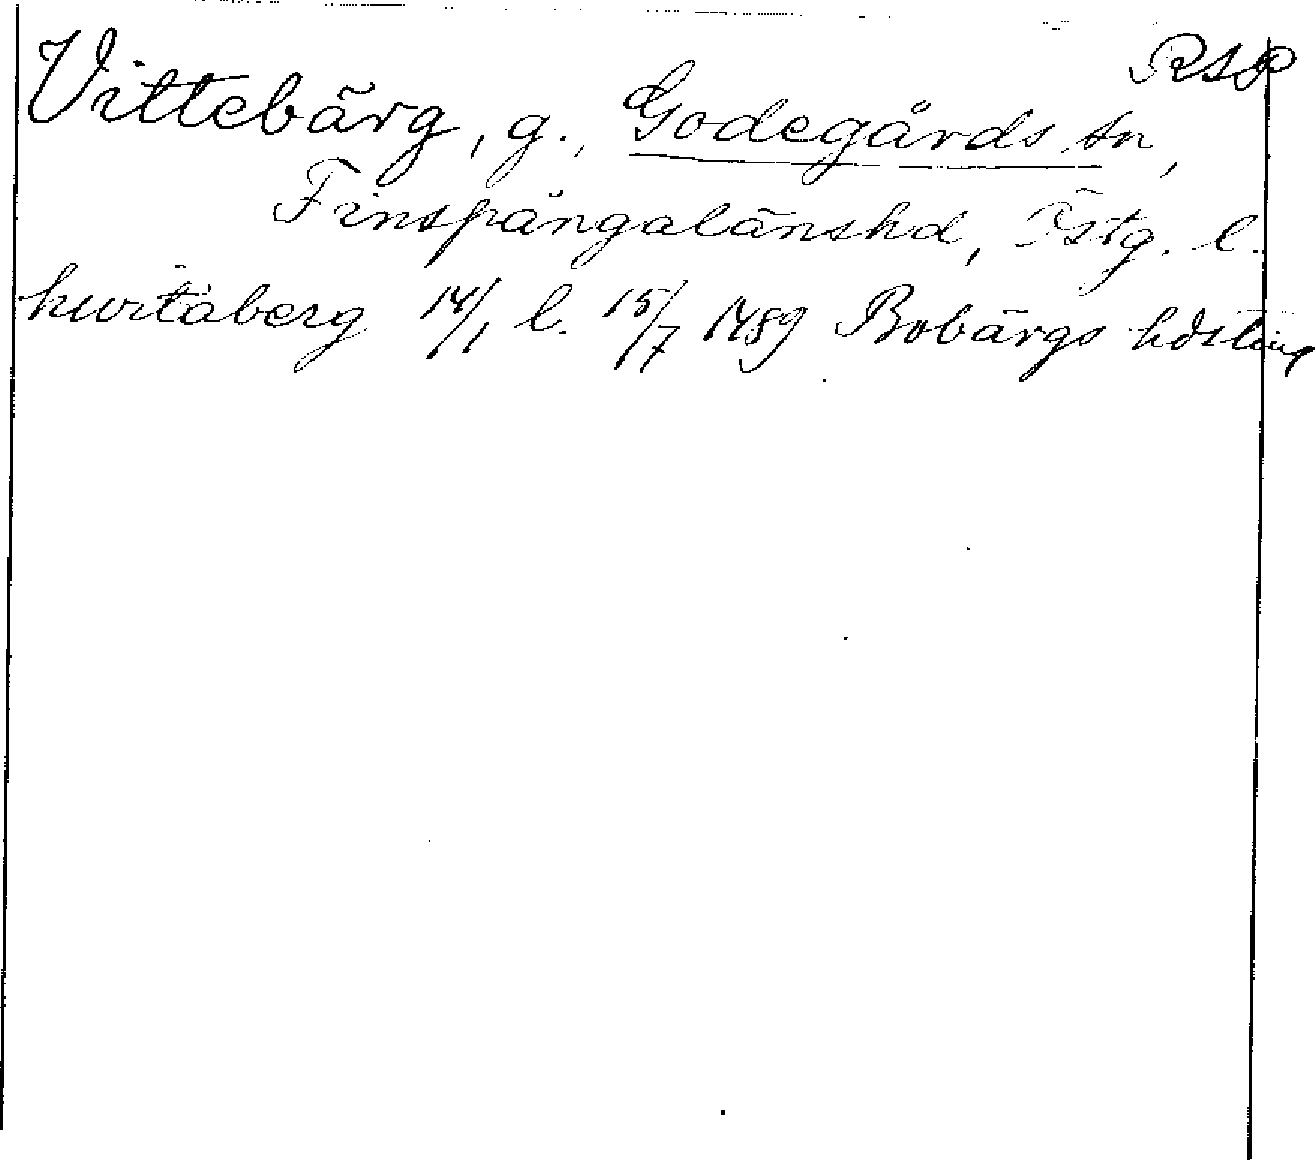 RAP
Vittebärg, g., Godegårds sn,
Finspångalänshd, Östg. l.
huvitaberg 14/1 l. 15/7 1489 Bobärgs hdsting